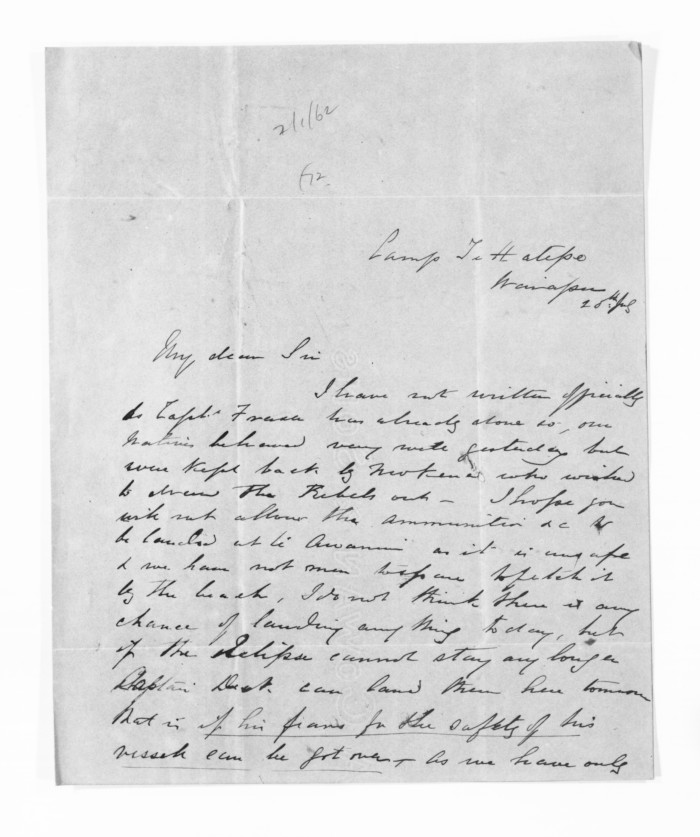 2/1/62
Camp Te Hatepe
Waiapu
My dear Sir
I have not written officially
as Captn Fraser has already done so, our
Natives behaved very well yesterday but
were kept back by who wished
to draw the Rebels out – I hope you
will not allow the ammunition &c to
be landed at Te Awanui as it is unsafe
& we have not men to spare to fetch it
by the beach, I do not think there is any
chance of landing any thing today, but
if the Eclipse cannot stay any longer
Captain can land them here tomorrow
that is if his fears for the safety of his
vessel can be got over – as we have only